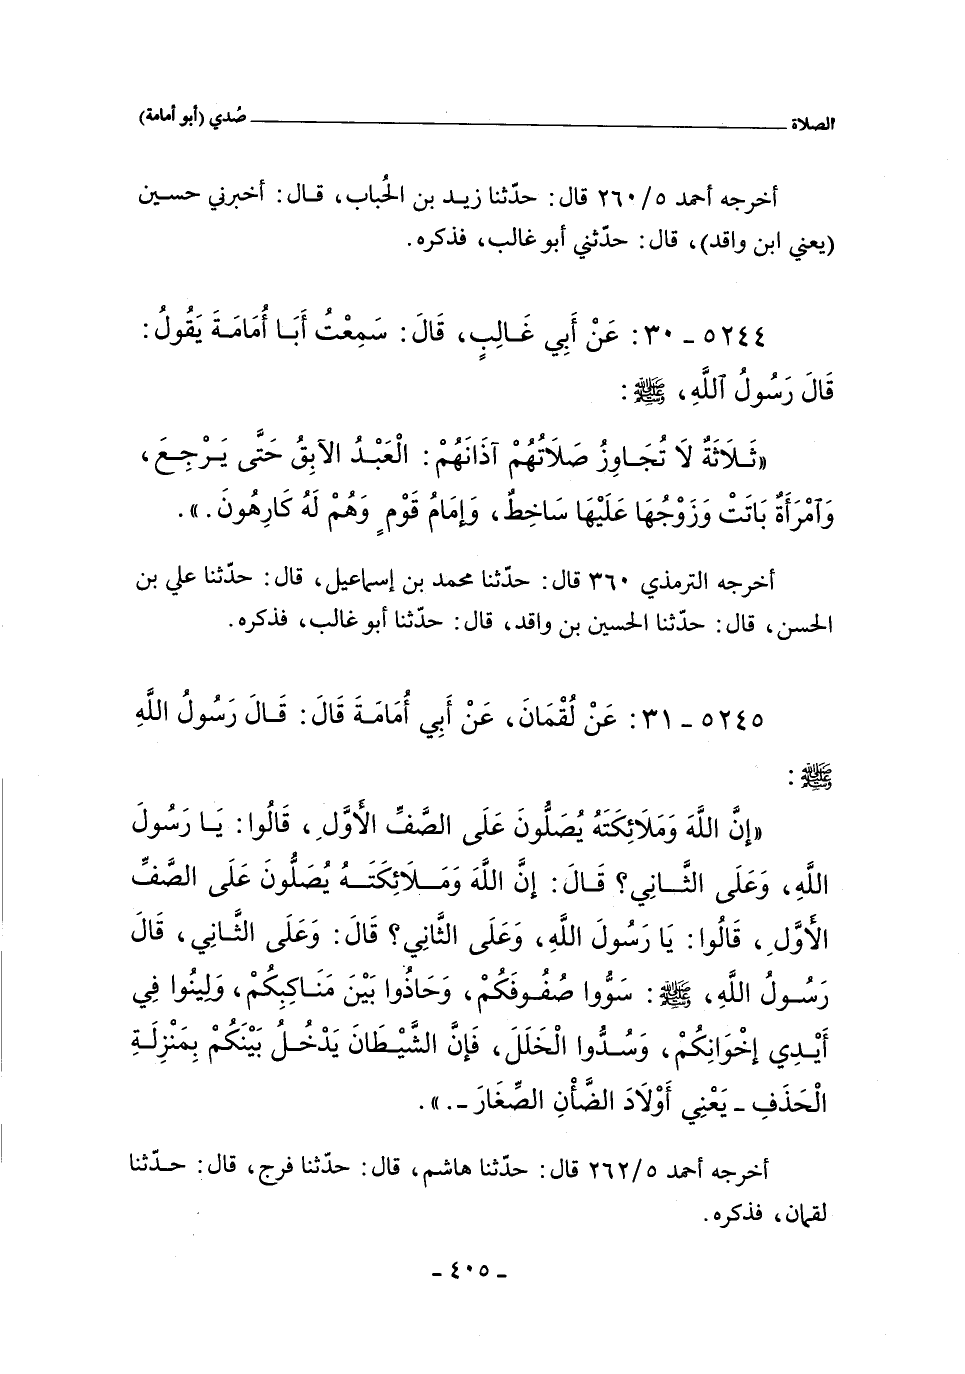 الصلاة ـــــــــــــــــــ صُدي (أبو أمامة)
أخرجه أحمد ٥/٢٦٠ قال: حدّثنا زيـد بن الحُباب، قـال: أخبرني حسين
(يعني ابن واقد)، قال: حدّثني أبو غالب، فذكره.
٥٢٤٤ ـ ٣٠: عَنْ أَبِي غَـالِبٍ، قَالَ: سَمِعْتُ أَبَـا أُمَامَـةَ يَقُولُ:
قَالَ رَسُولُ ٱللَّهِ، ﷺ:
«ثَـلَاثَةٌ لَا تُجَـاوِزُ صَلَاتُهُمْ آذَانَهُمْ: الْعَبْـدُ الآبِقُ حَتَّى يَـرْجِـعَ،
وَٱمْرَأَةٌ بَاتَتْ وَزَوْجُهَا عَلَيْهَا سَاخِطٌ، وَإِمَامُ قَوْمٍ وَهُمْ لَهُ كَارِهُونَ.».
أخرجه الترمذي ٣٦٠ قال: حدّثنا محمد بن إسماعيل، قال: حدّثنا علي بن
الحسن، قال: حدّثنا الحسين بن واقد، قال: حدّثنا أبو غالب، فذكره.
٥٢٤٥ ـ ٣١: عَنْ لُقْمَانَ، عَنْ أَبِي أُمَامَـةَ قَالَ: قَـالَ رَسُولُ اللَّهِ
ﷺ:
«إِنَّ اللَّهَ وَمَلَائِكَتَهُ يُصَلُّونَ عَلَى الصَّفِّ الأَوَّلِ، قَالُوا: يَـا رَسُولَ
اللَّهِ، وَعَلَى الثَّـانِي؟ قَـالَ: إِنَّ اللَّهَ وَمَـلَائِكَتَـهُ يُصَلُّونَ عَلَى الصَّفِّ
الأَوَّلِ، قَالُوا: يَا رَسُولَ اللَّهِ، وَعَلَى الثَّانِي؟ قَالَ: وَعَلَى الثَّـانِي، قَالَ
رَسُـولُ اللَّهِ، ﷺ: سَوُّوا صُفُـوفَكُمْ، وَحَاذُوا بَيْنَ مَنَـاكِبِكُمْ، وَلِينُوا فِي
أَيْـدِي إِخْوَانِكُمْ، وَسُـدُّوا الْخَلَلَ، فَإِنَّ الشَّيْطَانَ يَدْخُـلُ بَيْنَكُمْ بِمَنْزِلَـةِ
الْحَذَفِ ـ يَعْنِي أَوْلَادَ الضَّأْنِ الصِّغَارَ ـ.».
أخرجه أحمد ٥/٢٦٢ قال: حدّثنا هاشم، قال: حدّثنا فرج، قال: حـدّثنا
لقمان، فذكره.
ـ ٤٠٥ ـ